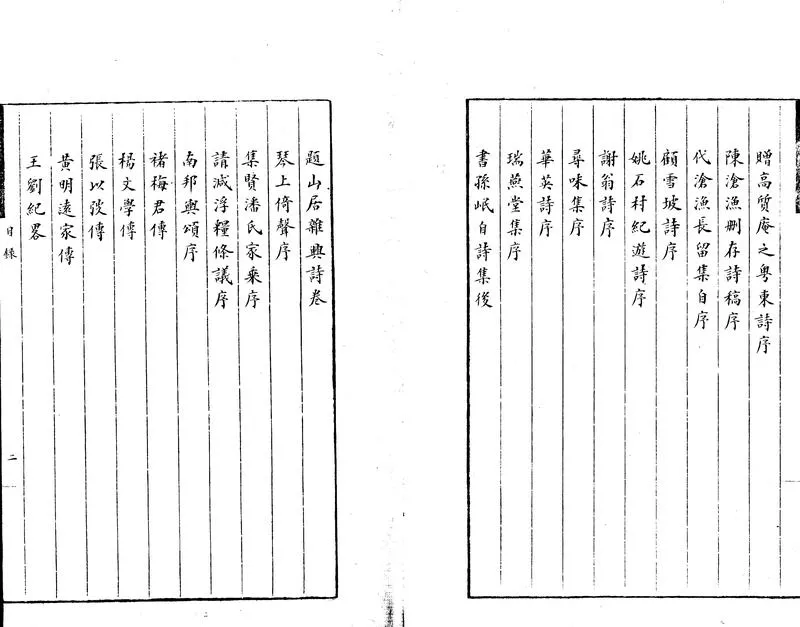 贈高質庵之粤東詩序
陳滄漁刪存詩稿序
代滄漁長留集自序
顧雪坡詩序
姚石村紀遊詩序
謝翁詩序
尋味集序
華英詩序
瑞燕堂集序
書孫岷自詩集後
題山居雜興詩卷
琴上倚聲序
集賢潘氏家乘序
請減浮糧條議序
南邦輿頌序
褚梅君傳
楊文學傳
張以弢傳
黃明遠家傳
王劉紀畧
目錄
二